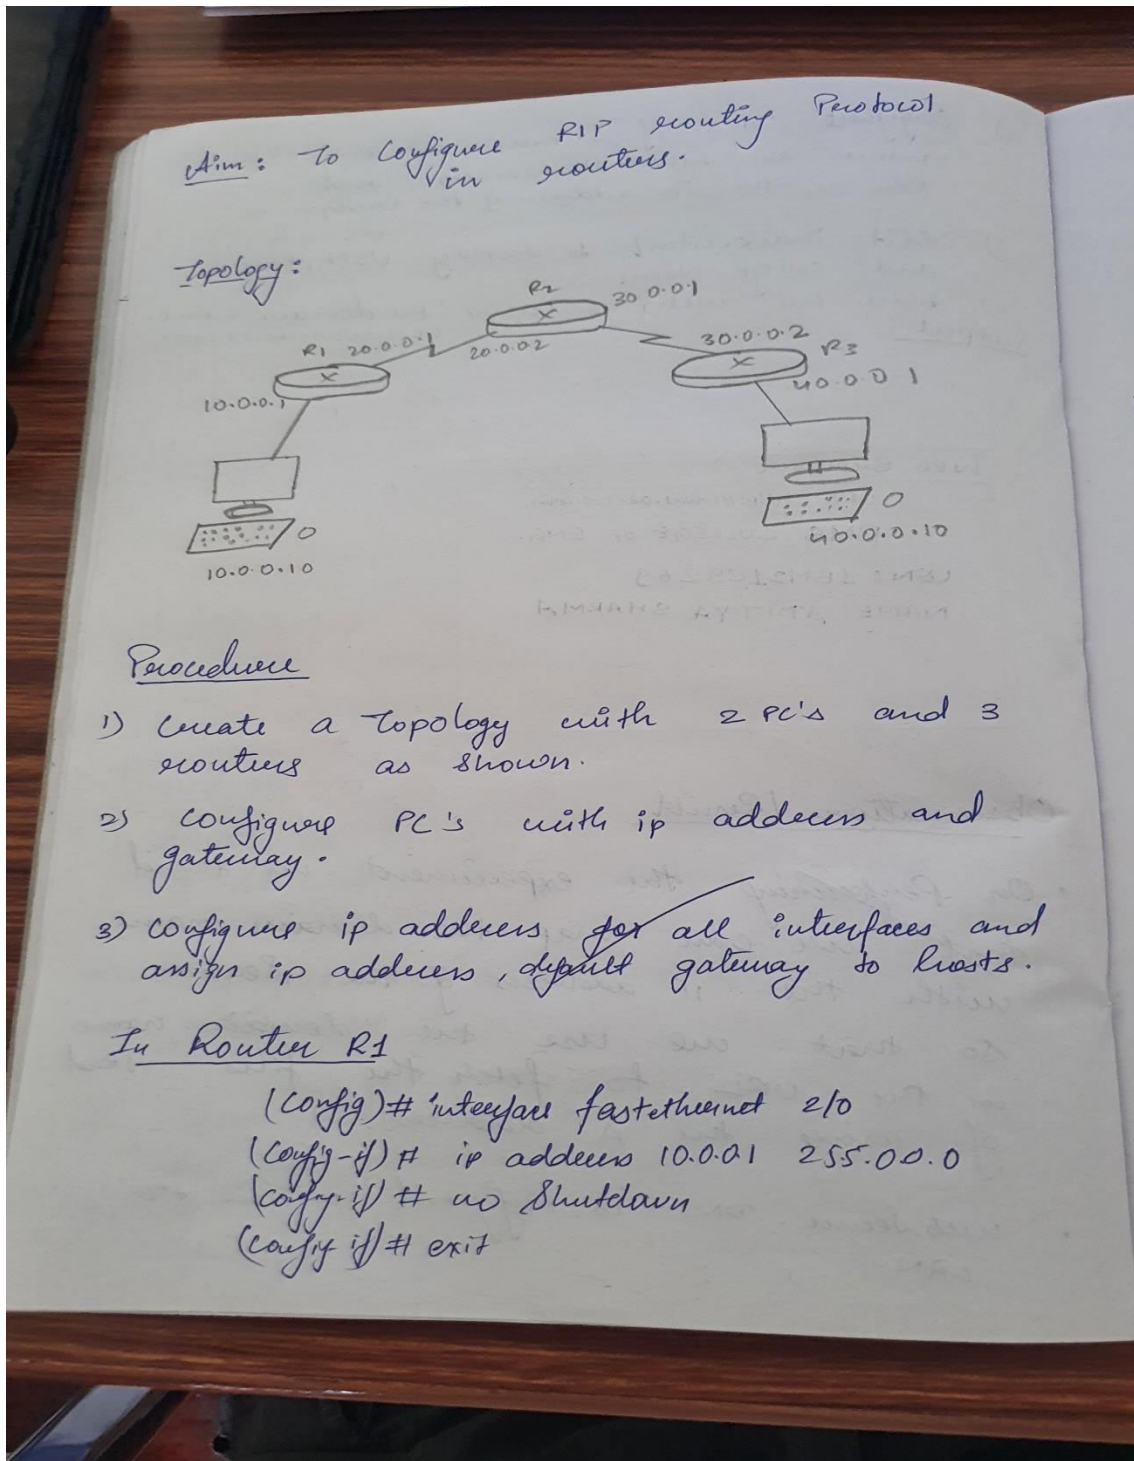 Aim: To Configure RIP routing Protocol
in routers.
Topology:
R2
30.0.0.1
R1 20.0.0.1
20.0.02
30.0.0.2
R3
10.0.0.1
40.0 0 1
10.0.0.10
40.0.0.10
Procedure
1) Create a Topology with 2 PC's and 3
routers as shown.
2) Configure PC's with ip address and
gateway.
3) Configure ip address for all interfaces and
assign ip address, default gateway to hosts.
In Router R1
(Config)# interface fastethernet 2/0
(Config-if)# ip address 10.0.0.1 255.00.0
(config-if)# no Shutdown
(config-if)# exit